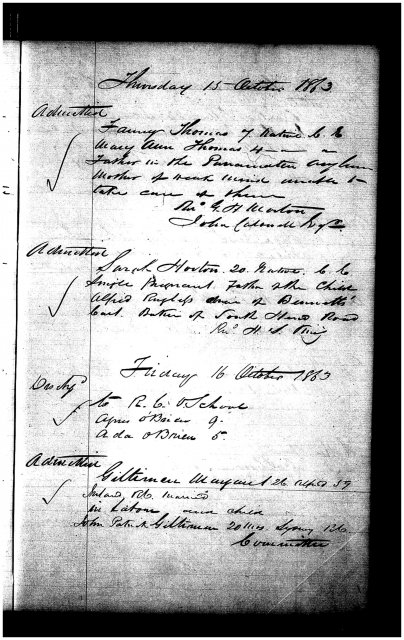 Thursday 15 October 1863
Admitted
Fanny Thomas 7 Native C E
Mary Ann Thomas 4 — " — "
Father in the Parramatta Asylum
Mother of weak mind unable to
take care of them
Revd G. H. Moreton
John Caldwell Esqr
Admitted
Sarah Horton. 20. Native. C. E.
Single Pregnant. Father of the Child
Alfred driver of Bennetts
Cart. Baker of South Head Road
Revd H. S. King
Friday 16 October 1863
to R. C. O School
Agnes O'Brien 9.
Ada O'Brien 5.
Admitted
Giltinan Margaret 26 59
Ireland, RC. Married
in Labour and child
John Patrick Giltinan 20 mos Sydney RC
Committee